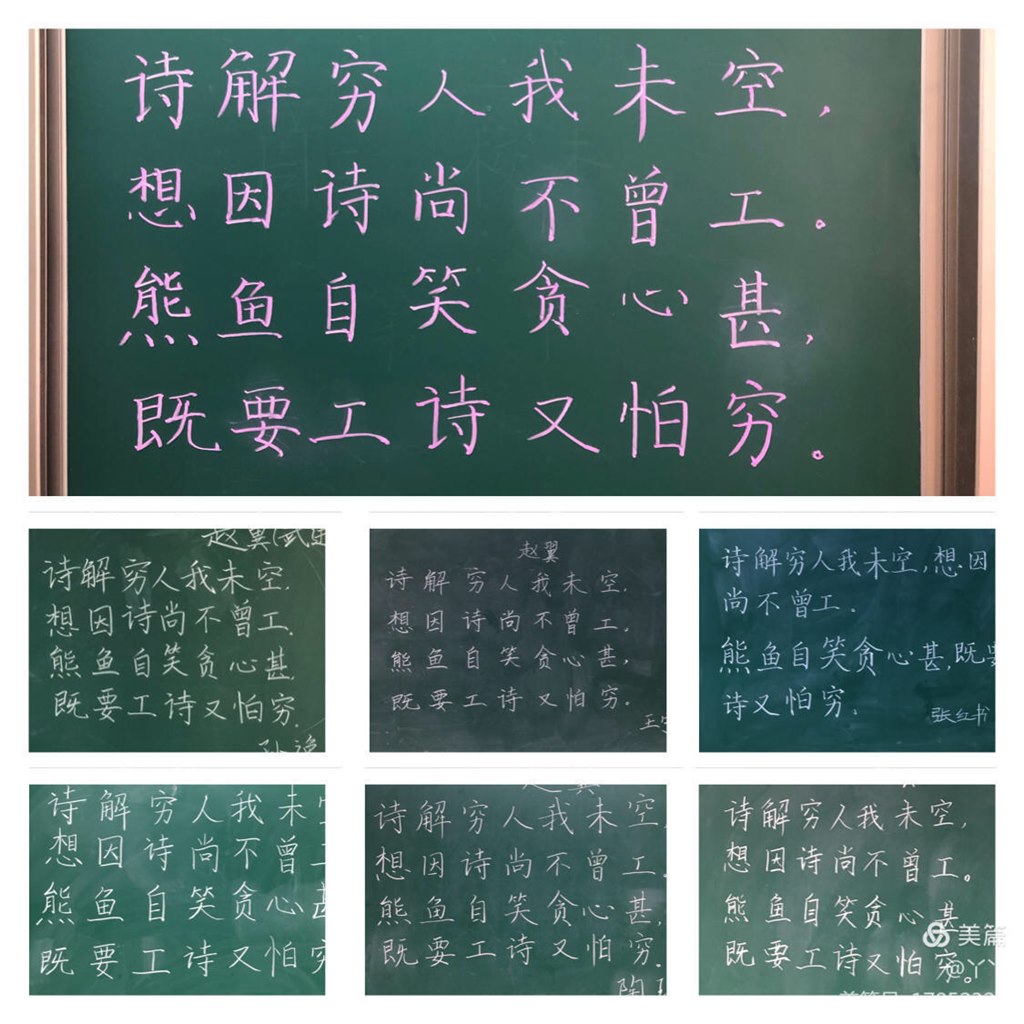 诗解穷人我未空，
想因诗尚不曾工。
熊鱼自笑贪心甚，
既要工诗又怕穷。
赵翼(武进
诗解穷人我未空.
想因诗尚不曾工.
熊鱼自笑贪心甚
既要工诗又怕穷.
赵翼
诗解穷人我未空.
想因诗尚不曾工。
熊鱼自笑贪心甚,
既要工诗又怕穷。
王
诗解穷人我未空,想因
尚不曾工.
熊鱼自笑贪心甚,既要
诗又怕穷.
张红书
诗解穷人我未
想因诗尚不曾
熊鱼自笑贪心甚
既要工诗又怕穷
诗解穷人我未空,
想因诗尚不曾工.
熊鱼自笑贪心甚,
既要工诗又怕穷.
陶
诗解穷人我未空,
想因诗尚不曾工。
熊鱼自笑贪心甚
既要工诗又怕穷。
美篇
@丫丫